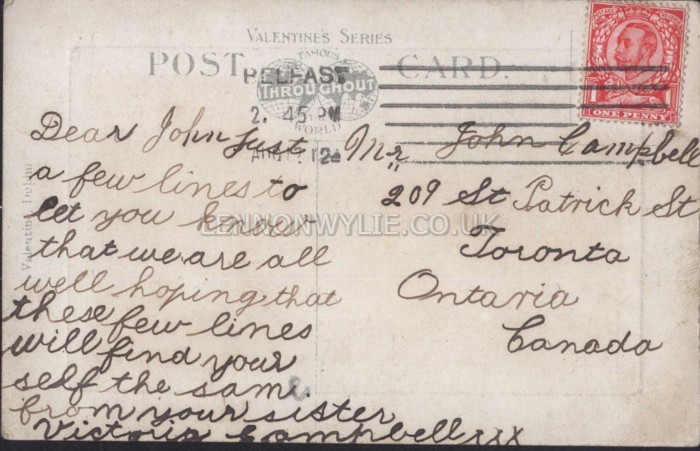 VALENTINE'S SERIES
POST CARD.
FAMOUS
THROUGHOUT
WORLD
BELFAST
2. 45 PM
12
ONE PENNY
Valentine, Dublin
LENNONWYLIE.CO.UK
Dear John Just
a few lines to
let you know
that we are all
well hoping that
these few lines
will find your
self the same
from your sister
Victoria Campbell xxx
Mr John Campbell
209 St Patrick St
Toronto
Ontaria
Canada